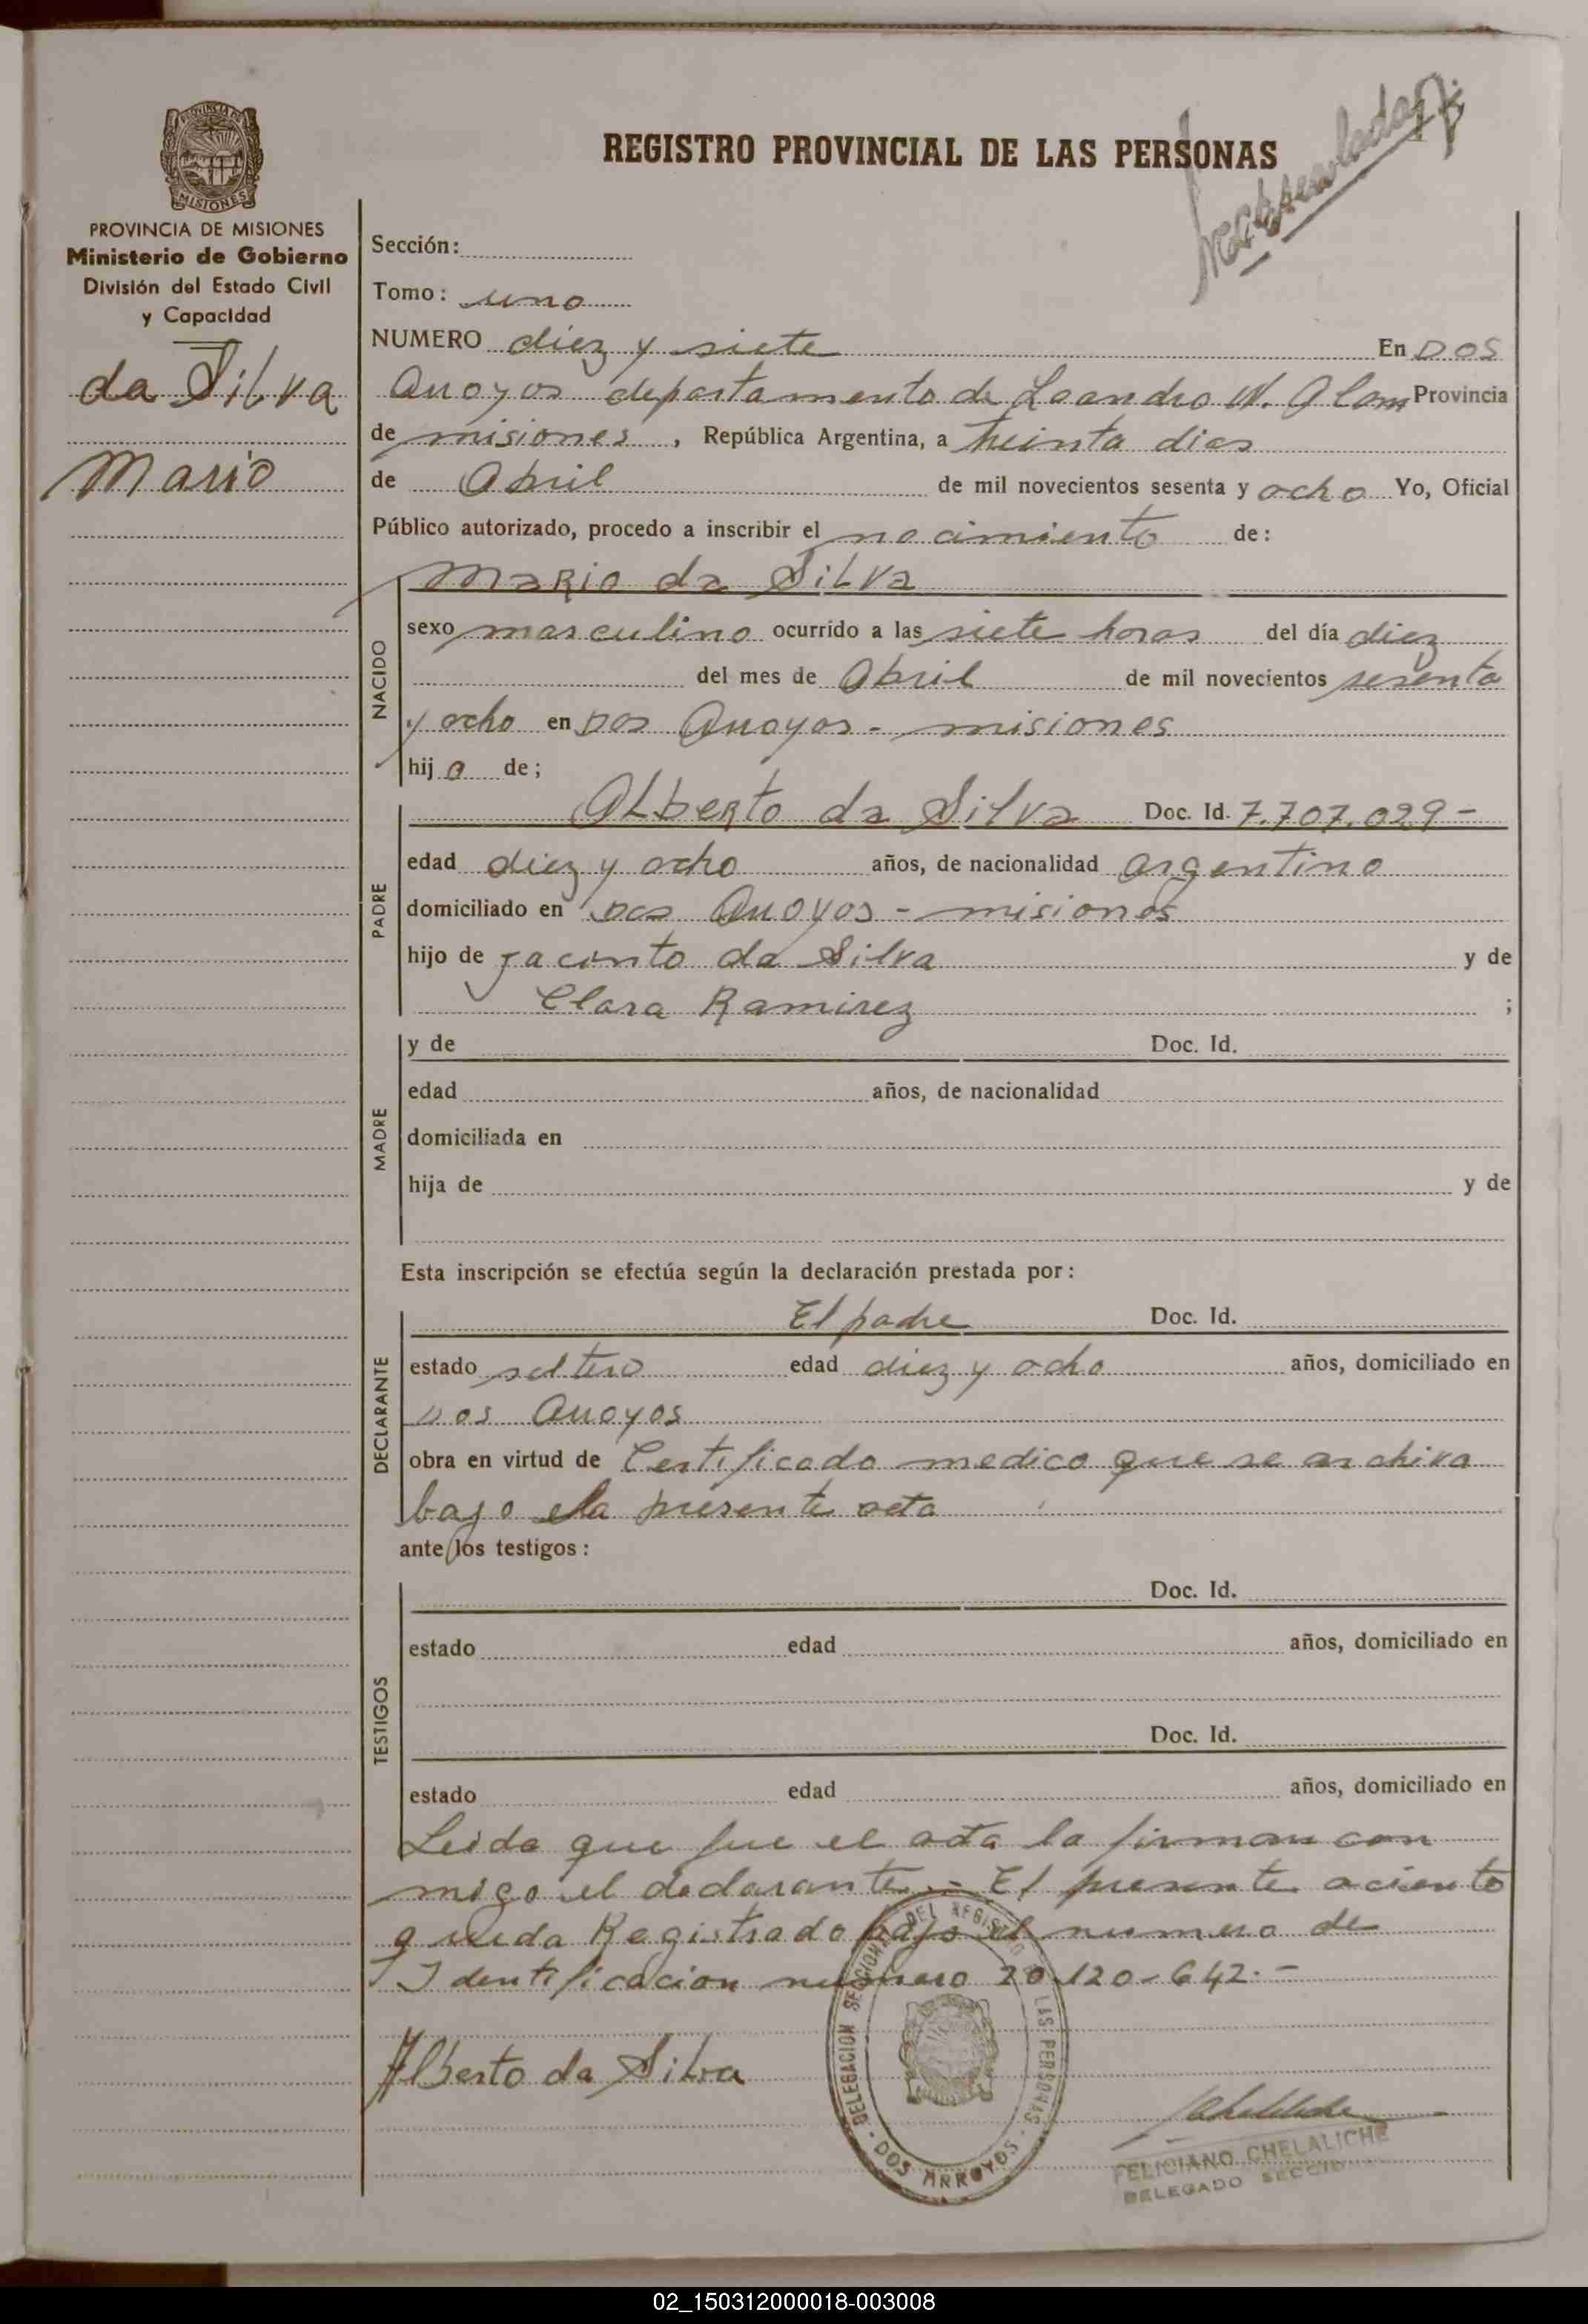 PROVINCIA DE
MISIONES
PROVINCIA DE MISIONES
Ministerio de Gobierno
División del Estado Civil
y Capacidad
da Silva
Mario
REGISTRO PROVINCIAL DE LAS PERSONAS
Sección:
Tomo: uno
NUMERO diez y siete En DOS
Arroyos departamento de Leandro N. Alem Provincia
de misiones, República Argentina, a treinta dias
de Abril de mil novecientos sesenta y ocho Yo, Oficial
Público autorizado, procedo a inscribir el nacimiento de:
NACIDO
Mario da Silva
sexo masculino ocurrido a las siete horas del día diez
del mes de Abril de mil novecientos sesenta
y ocho en Dos Arroyos - misiones
hij o de;
PADRE
Alberto da Silva Doc. Id. 7.707.029-
edad diez y ocho años, de nacionalidad argentino
domiciliado en Dos Arroyos - misiones
hijo de Jacinto da Silva y de
Clara Ramirez ;
MADRE
y de Doc. Id.
edad años, de nacionalidad
domiciliada en
hija de y de
Esta inscripción se efectúa según la declaración prestada por:
DECLARANTE
El padre Doc. Id.
estado soltero edad diez y ocho años, domiciliado en
Dos Arroyos
obra en virtud de Certificado medico que se archiva
bajo la presente acta
ante los testigos:
TESTIGOS
Doc. Id.
estado edad años, domiciliado en
Doc. Id.
estado edad años, domiciliado en
Leida que fue el acta la firman con
migo el declarante.- El presente aciento
queda Registrado bajo el numero de
Identificacion numero 20.120-642.-
DELEGACION SECCIONAL DEL REGISTRO DE LAS PERSONAS - DOS ARROYOS -
Alberto da Silva
FELICIANO CHELALICHE
DELEGADO SECCIO
02_150312000018-003008